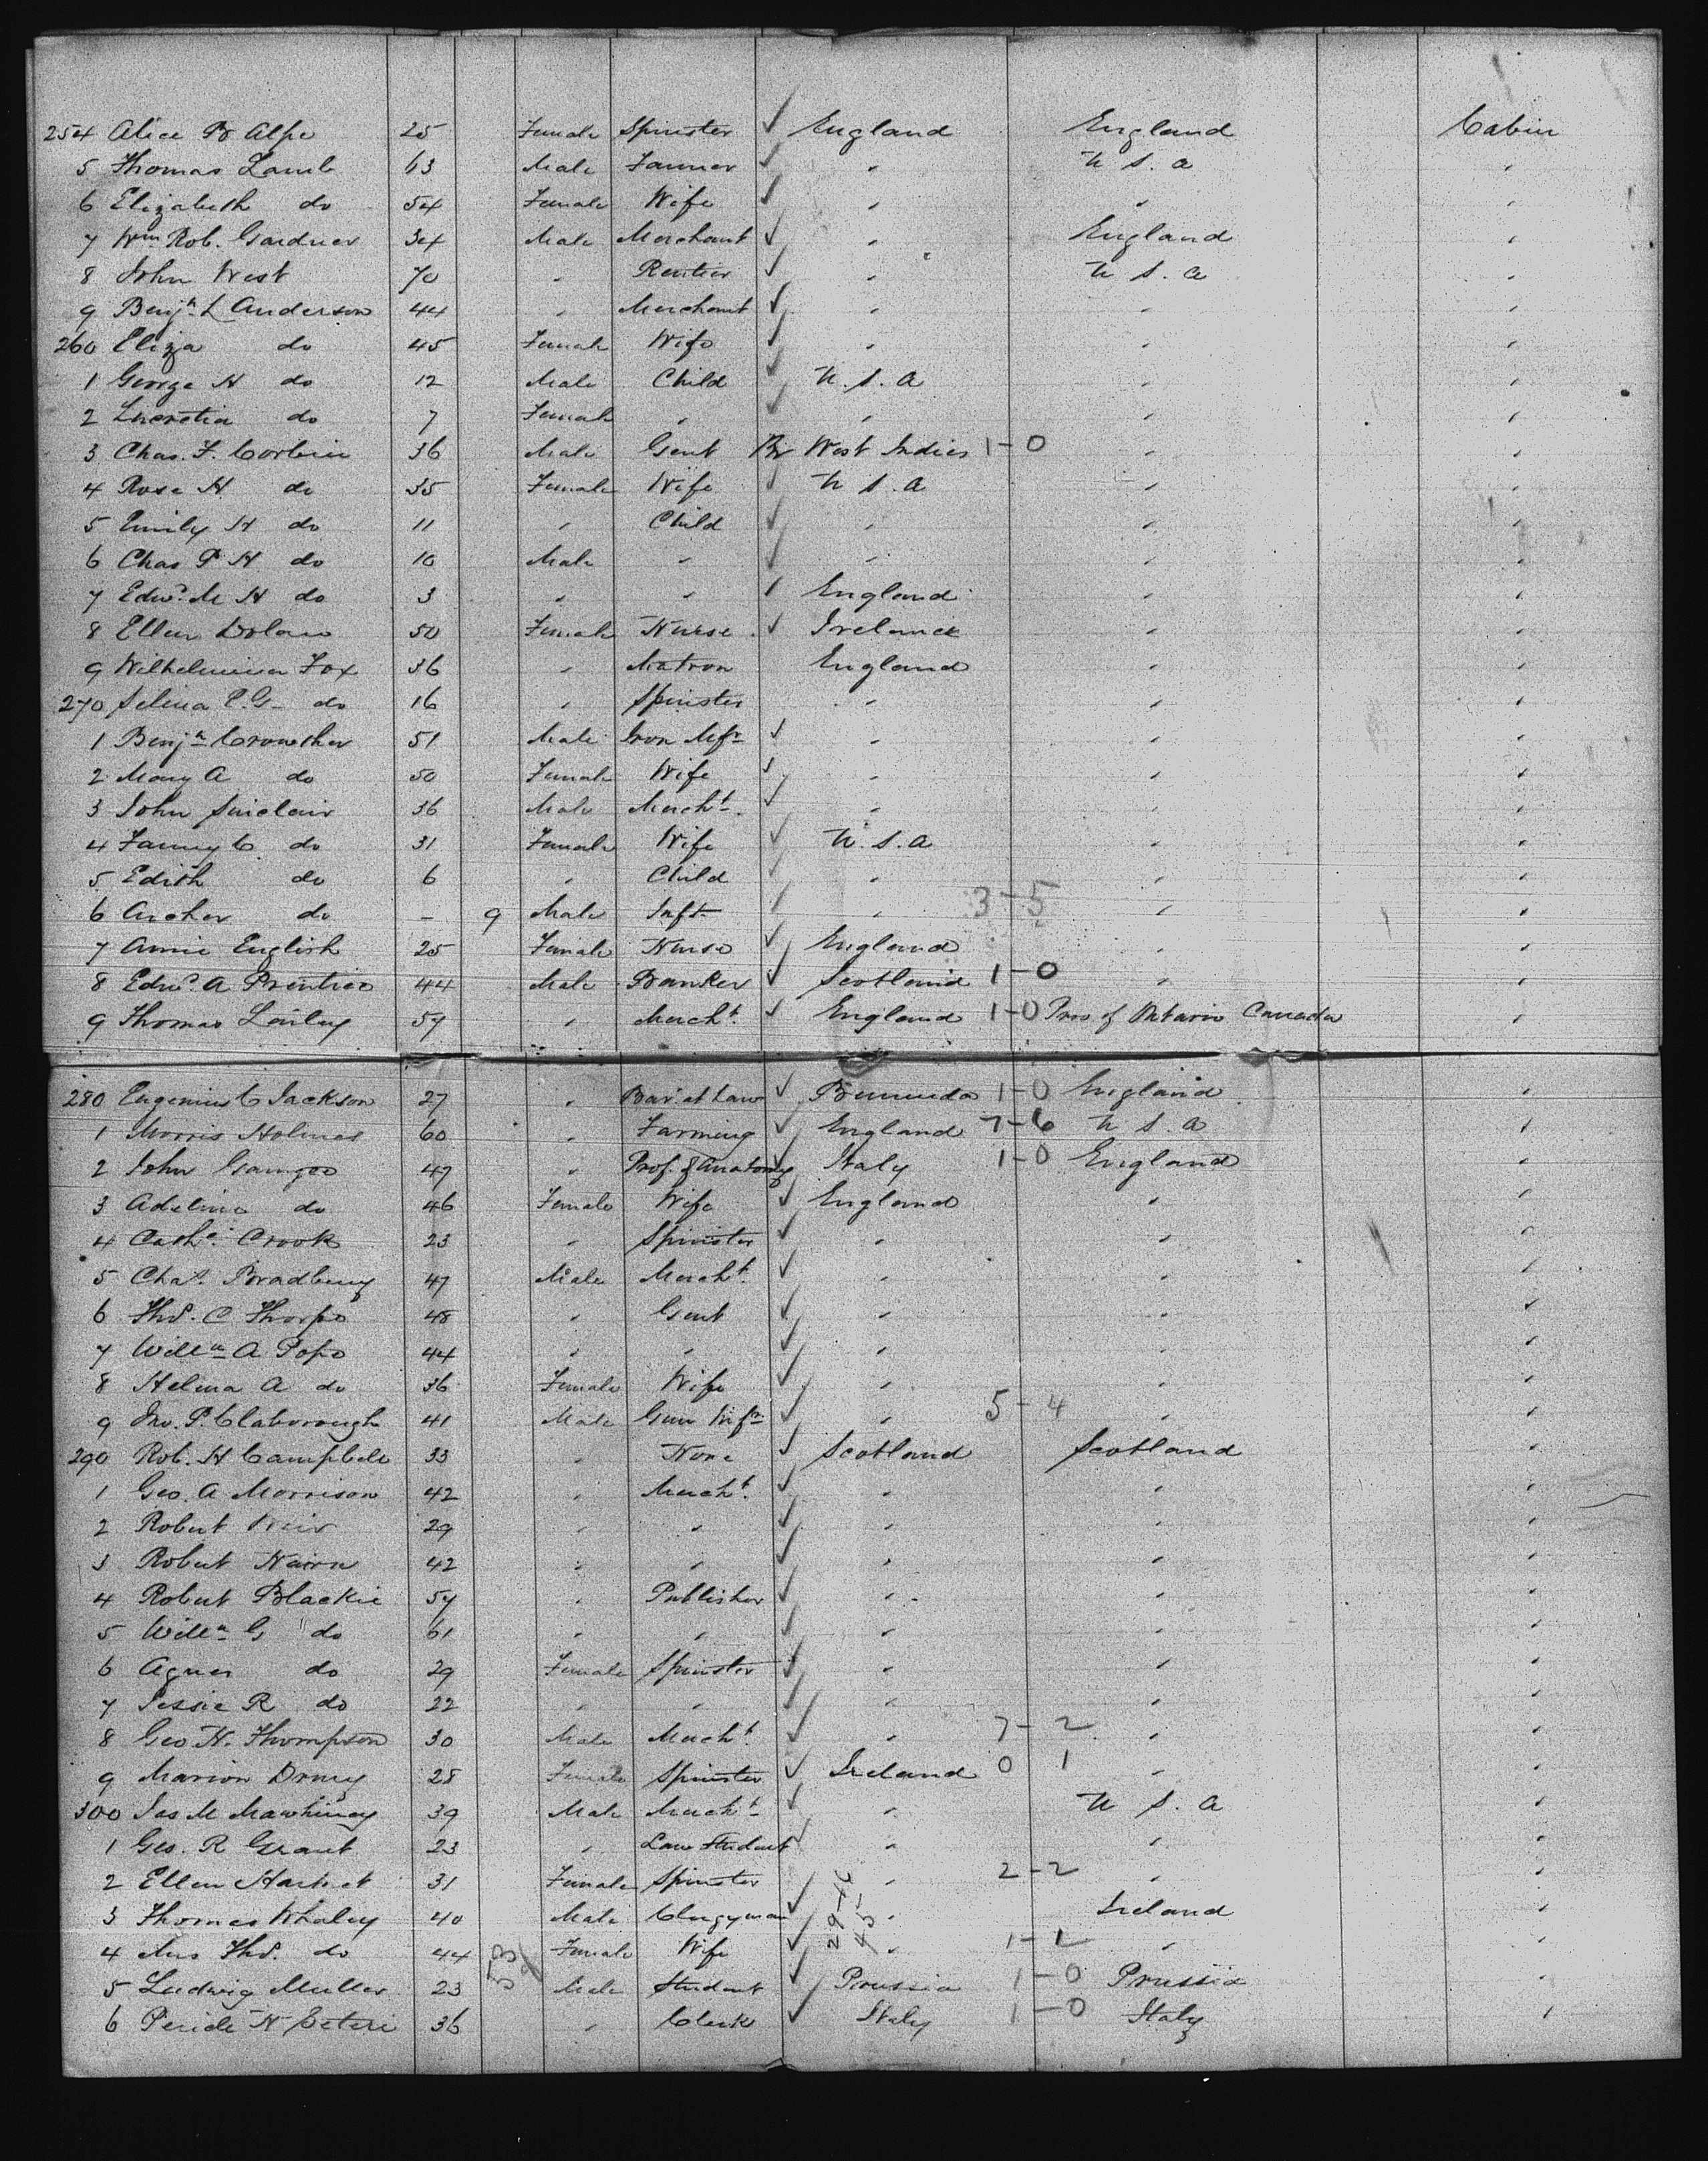 254 Alice B Alpe 25 Female Spinster ✓ England England Cabin
5 Thomas Lamb 63 Male Farmer ✓ " U S. A "
6 Elizabeth do 54 Female Wife ✓ " " "
7 Wm Rob. Gardner 34 Male Merchant ✓ " England "
8 John West 70 " Rentier ✓ " U S. A "
9 Benjn L Anderson 44 " Merchant ✓ " " "
260 Eliza do 45 Female Wife ✓ " " "
1 George H do 12 Male Child ✓ U. S. A " "
2 Lucretia do 7 Female " ✓ " " "
3 Chas. F. Corbin 36 Male Gent Br West Indies 1-0 " "
4 Rose H do 35 Female Wife ✓ U S. A " "
5 Emily H do 11 " Child ✓ " " "
6 Chas P H do 10 Male " ✓ " " "
7 Edwd. M H do 3 " " ✓ England " "
8 Ellen Dolan 50 Female Nurse ✓ Ireland " "
9 Wilhelmina Fox 36 " Matron England " "
270 Selina E. G- do 16 " Spinster " " "
1 Benjn Crowther 51 Male Iron Mfr ✓ " " "
2 Mary A do 50 Female Wife ✓ " " "
3 John Sinclair 36 Male Mercht. ✓ " " "
4 Fanny C do 31 Female Wife ✓ U. S. A " "
5 Edith do 6 " Child ✓ " " "
6 Archer do - 9 Male Inft ✓ " 3-5 " "
7 Annie English 25 Female Nurse ✓ England " "
8 Edwd. A Prentice 44 Male Banker ✓ Scotland 1-0 " "
9 Thomas Lailey 59 " Mercht. ✓ England 1-0 Prov of Ontario Canada "
280 Eugenius C Jackson 27 " Bar. at Law ✓ Bermuda 1-0 England "
1 Morris Holmes 60 " Farming ✓ England 7-6 U S. A "
2 John Gamgee 47 " Prof. of Anatomy ✓ Italy 1-0 England "
3 Adeline do 46 Female Wife ✓ England " "
4 Cathe. Crook 23 " Spinster ✓ " " "
5 Chas. Bradbury 47 Male Mercht. ✓ " " "
6 Thos. C Thorpe 48 " Gent ✓ " " "
7 Willm A Pope 44 " " ✓ " " "
8 Helena A do 36 Female Wife ✓ " " "
9 Jno. P. Claborough 41 Male Gun Mfr ✓ " 5-4 " "
290 Rob. H Campbell 33 " None ✓ Scotland Scotland "
1 Geo. A Morrison 42 " Mercht. ✓ " " "
2 Robert Weir 29 " " ✓ " " "
3 Robert Nairn 42 " " ✓ " " "
4 Robert Blackie 59 " Publisher ✓ " " "
5 Willm G do 61 " " ✓ " " "
6 Agnes do 29 Female Spinster ✓ " " "
7 Jessie R do 22 " " ✓ " " "
8 Geo H. Thompson 30 Male Mercht. ✓ " 7-2 " "
9 Marion Drury 28 Female Spinster ✓ Ireland 0 1 " "
300 Jas M Mawhiney 39 Male Mercht. ✓ " U S. A "
1 Geo. R Grant 23 " Law Student ✓ " " "
2 Ellen 31 Female Spinster " 2-2 " "
3 Thomas Whaley 40 Male Clergyman ✓ " Ireland "
4 Mrs Thos. do 44 Female Wife ✓ " 1-1 " "
5 Ludwig Muller 23 Male Student ✓ Prussia 1-0 Prussia "
6 36 " Clerk ✓ Italy 1-0 Italy "